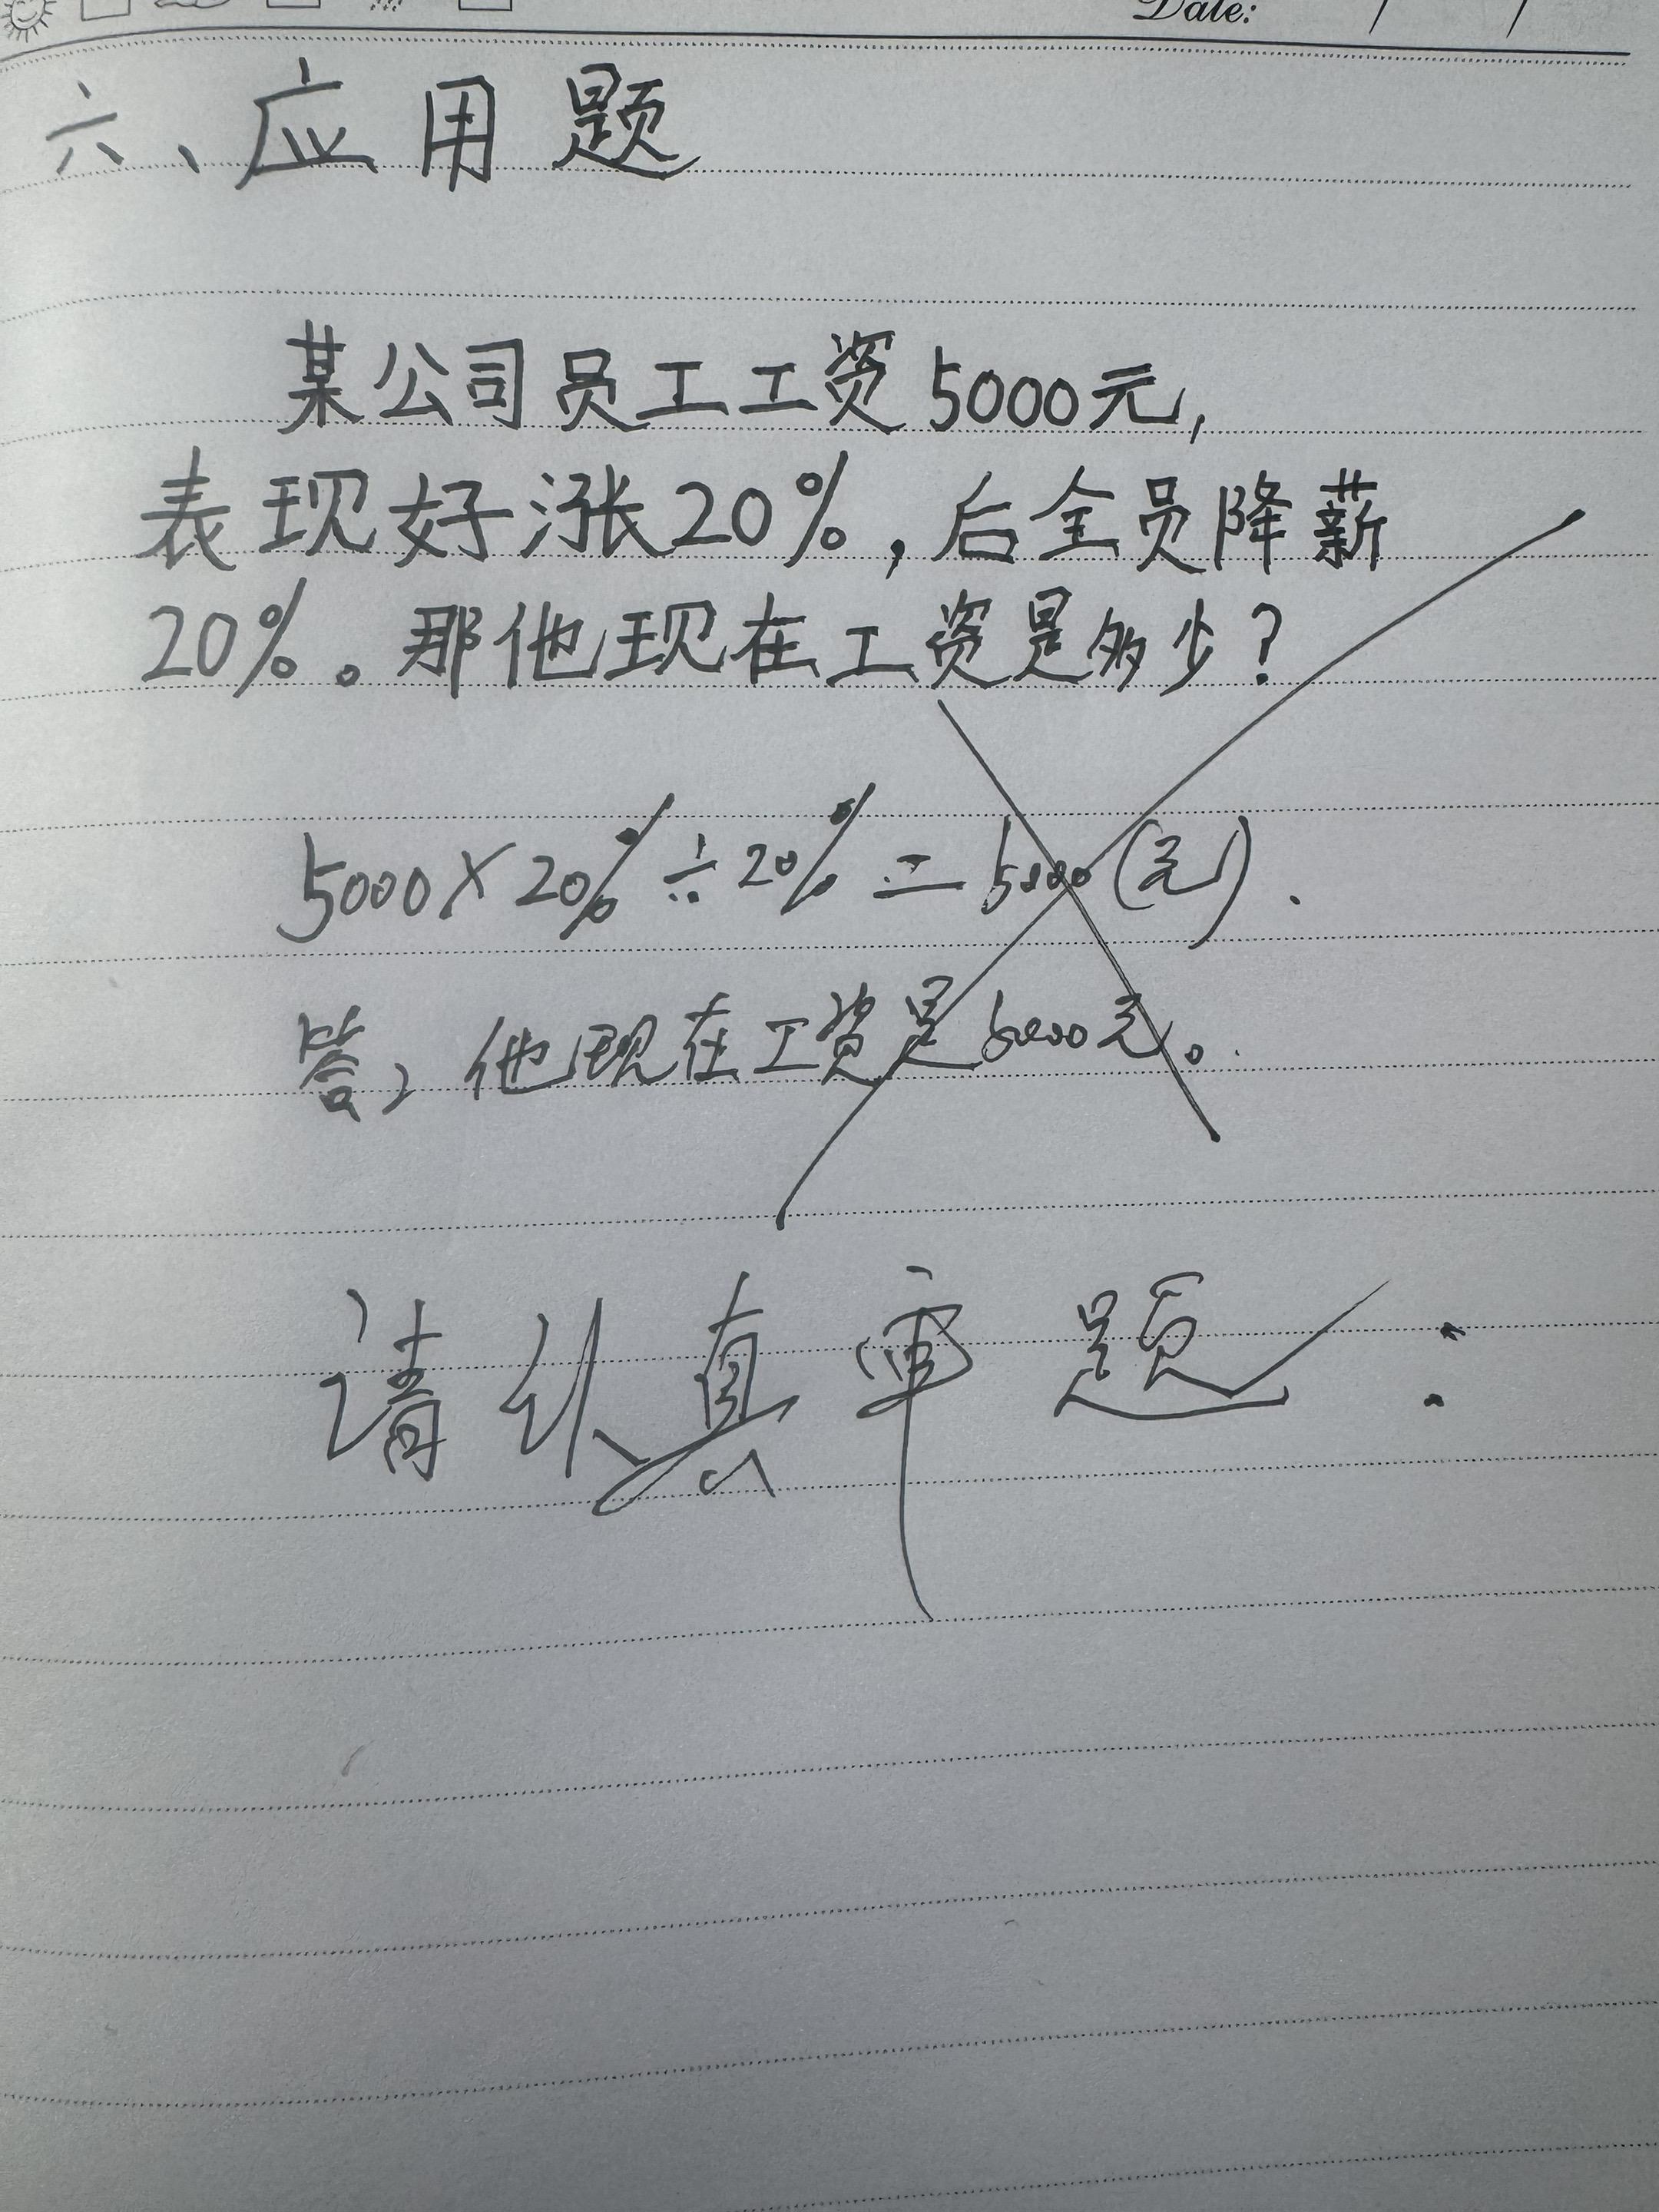 Date:
六、应用题
某公司员工工资5000元,
表现好涨20%,后全员降薪
20%。那他现在工资是多少?
5000×20%÷20%=5000(元).
答,他现在工资是5000元。
请认真审题: